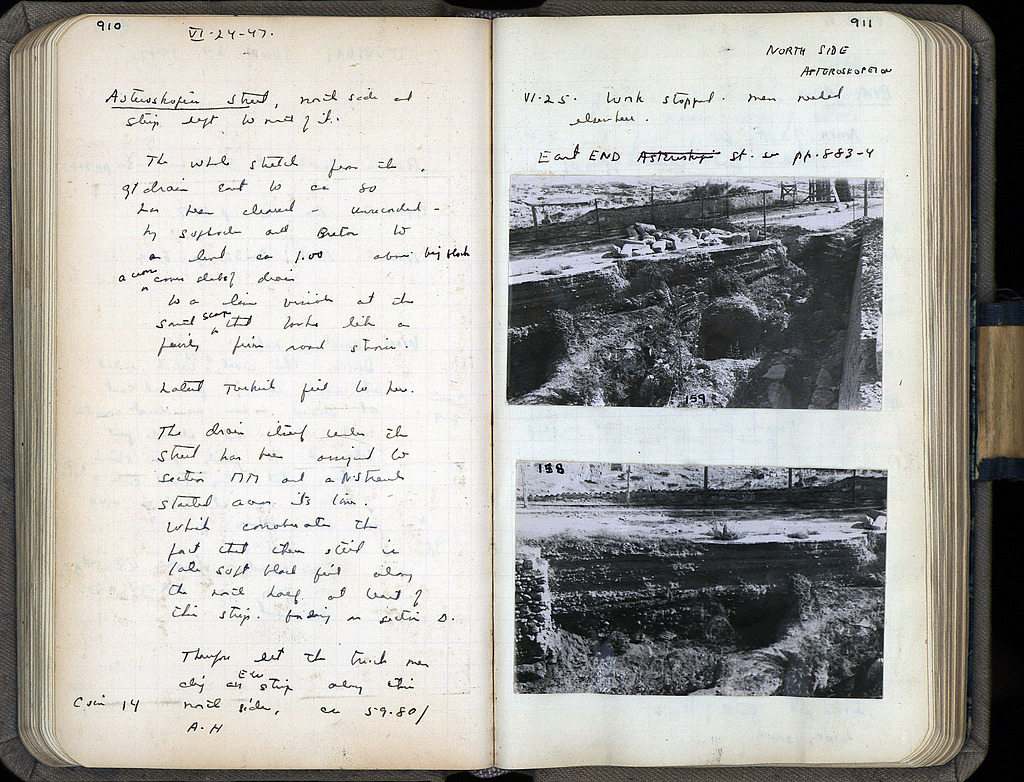 910
VI-24-47.
Asteroskopeion street, north side at
strip left to north of it.
The whole stretch from the
gt drain east to ca 80
has been cleared – unrecorded –
by and to
a level ca 1.00 above big block
cover slabs of drain
to a line visible at the
south scarp that looks like a
fairly firm road stosis.
Latest Turkish fill to here.
The drain itself under the
street has been assigned to
section MM and a N-S trench
started across its line.
Which corroborates the
fact that there still is
late soft black fill along
the north half at least of
this strip. in section D.
Therefore let the truck men
dig an EW strip along this
Coin 14 north side, ca 59.80/
A-H
911
NORTH SIDE
ASTEROSKOPEION
VI-25. Work stopped. men needed
elsewhere.
East END st. see pp. 883-4
159
158